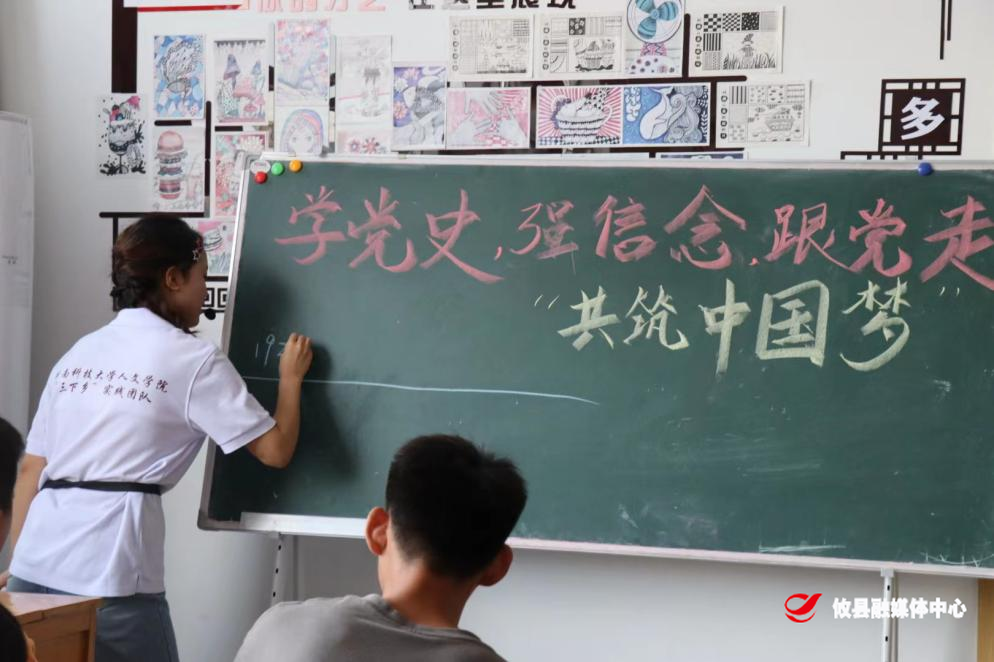 多
学党史,强信念,跟党走
“共筑中国梦”
19
南科技大学人文学院
"三下乡"实践团队
攸县融媒体中心